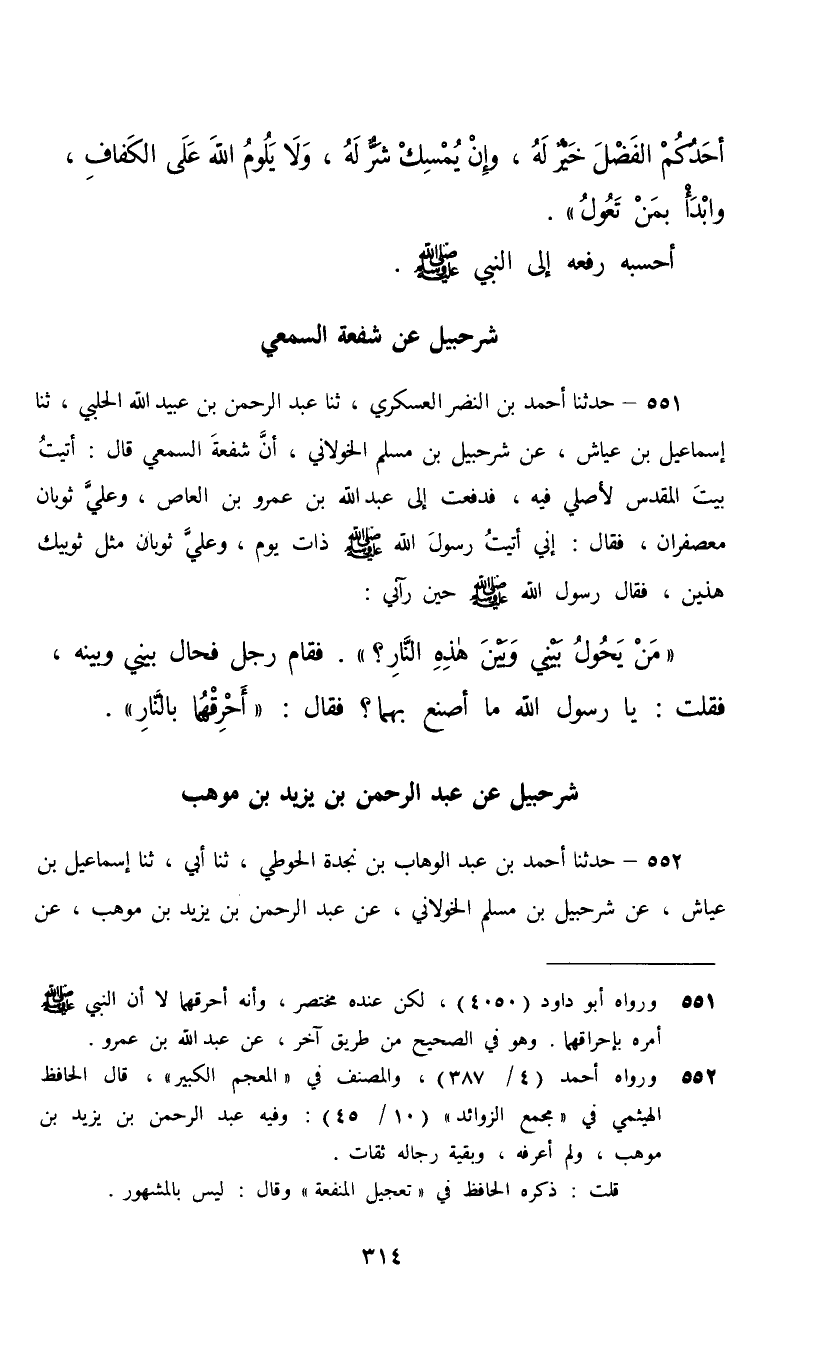 أحَدُكُمْ الفَضْلَ خَيْرٌ لَهُ ، وإنْ يُمْسِكْ شَرٌّ لَهُ ، وَلَا يَلُومُ اللهَ عَلَى الكَفافِ ،
وابْدَأْ بمَنْ تَعُولُ» .
أحسبه رفعه إلى النبي ﷺ .
شرحبيل عن شفعة السمعي
٥٥١ - حدثنا أحمد بن النضر العسكري ، ثنا عبد الرحمن بن عبيد الله الحلبي ، ثنا
إسماعيل بن عياش ، عن شرحبيل بن مسلم الخولاني ، أنَّ شفعةَ السمعي قال : أتيتُ
بيتَ المقدس لأصلي فيه ، فدفعت إلى عبد الله بن عمرو بن العاص ، وعليَّ ثوبان
معصفران ، فقال : إني أتيتُ رسولَ الله ﷺ ذات يوم ، وعليَّ ثوبان مثل ثوبيك
هذين ، فقال رسول الله ﷺ حين رآني :
«مَنْ يَحُولُ بَيْنِي وَبَيْنَ هٰذِهِ النَّارِ؟» . فقام رجل فحال بيني وبينه ،
فقلت : يا رسول الله ما أصنع بهما؟ فقال : «أَحْرِقْهُما بالنَّارِ» .
شرحبيل عن عبد الرحمن بن يزيد بن موهب
٥٥٢ - حدثنا أحمد بن عبد الوهاب بن نجدة الحوطي ، ثنا أبي ، ثنا إسماعيل بن
عياش ، عن شرحبيل بن مسلم الخولاني ، عن عبد الرحمن بن يزيد بن موهب ، عن
٥٥١ ورواه أبو داود (٤٠٥٠) ، لكن عنده مختصر ، وأنه أحرقهما لا أن النبي ﷺ
أمره بإحراقهما . وهو في الصحيح من طريق آخر ، عن عبد الله بن عمرو .
٥٥٢ ورواه أحمد (٤/ ٣٨٧) ، والمصنف في «المعجم الكبير» ، قال الحافظ
الهيثمي في «مجمع الزوائد» (١٠/ ٤٥) : وفيه عبد الرحمن بن يزيد بن
موهب ، ولم أعرفه ، وبقية رجاله ثقات .
قلت : ذكره الحافظ في «تعجيل المنفعة» وقال : ليس بالمشهور .
٣١٤